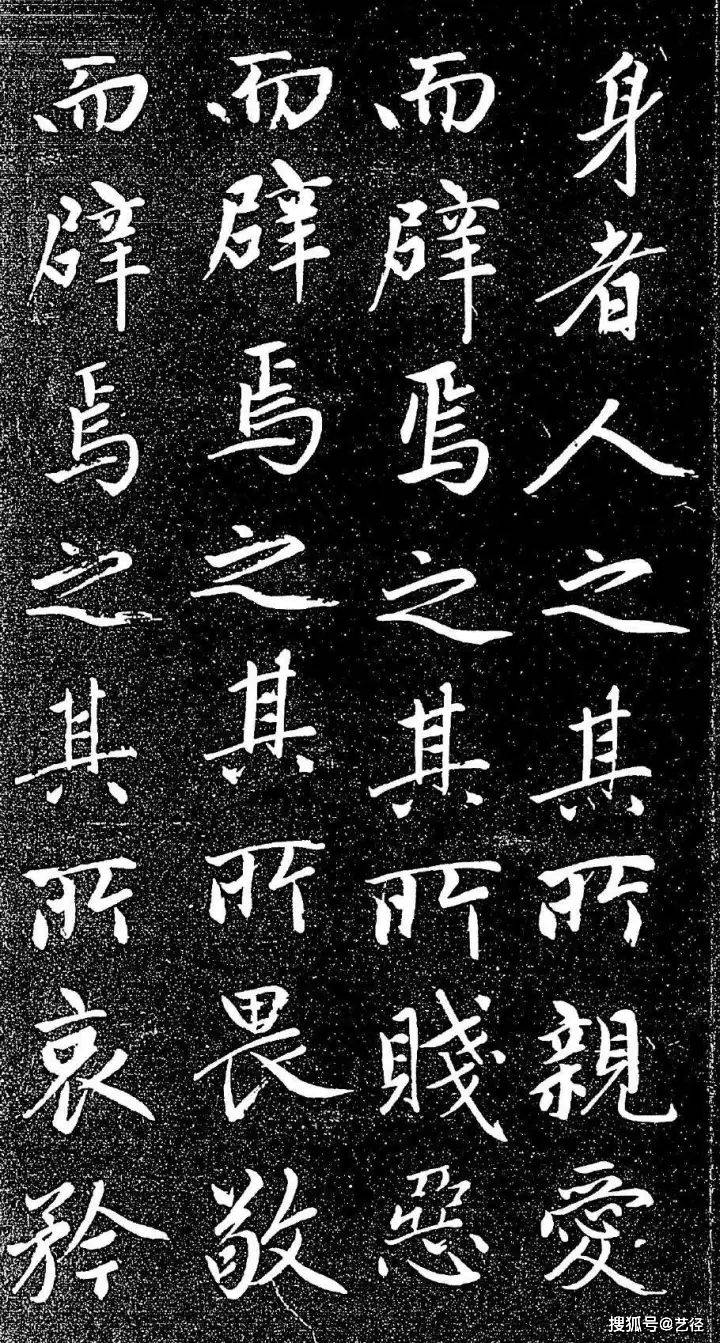 身者人之其所親愛
而辟焉之其所賤惡
而辟焉之其所畏敬
而辟焉之其所哀矜
搜狐号@艺径